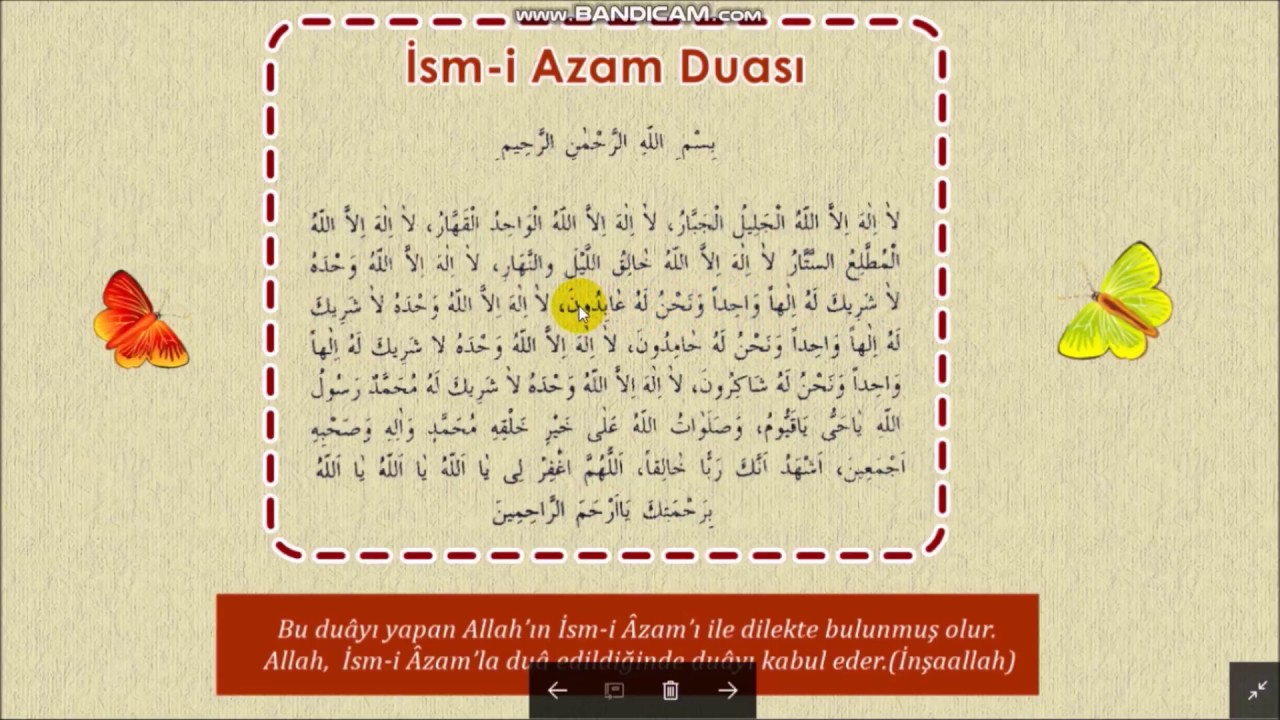 www.BANDICAM.com
İsm-i Azam Duası
بِسْمِ اللّٰهِ الرَّحْمٰنِ الرَّحِيمِ
لاٰ اِلٰهَ اِلاَّ اللّٰهُ الْجَلِيلُ الْجَبَّارُ، لاٰ اِلٰهَ اِلاَّ اللّٰهُ الْوَاحِدُ الْقَهَّارُ، لاٰ اِلٰهَ اِلاَّ اللّٰهُ
الْمُطَّلِعُ السَّتَّارُ لاٰ اِلٰهَ اِلاَّ اللّٰهُ خٰالِقُ اللَّيْلَ والنَّهَارِ، لاٰ اِلٰهَ اِلاَّ اللّٰهُ وَحْدَهُ
لاٰ شَرِيكَ لَهُ اِلٰهاً وَاحِداً وَنَحْنُ لَهُ عٰابِدُونَ، لاٰ اِلٰهَ اِلاَّ اللّٰهُ وَحْدَهُ لاٰ شَرِيكَ
لَهُ اِلٰهاً وَاحِداً وَنَحْنُ لَهُ حٰامِدُونَ، لاٰ اِلٰهَ اِلاَّ اللّٰهُ وَحْدَهُ لاٰ شَرِيكَ لَهُ اِلٰهاً
وَاحِداً وَنَحْنُ لَهُ شَاكِرُونَ، لاٰ اِلٰهَ اِلاَّ اللّٰهُ وَحْدَهُ لاٰ شَرِيكَ لَهُ مُحَمَّدٌ رَسُولُ
اللّٰهِ يٰاحَىُّ يَاقَيُّومُ، وَصَلَوٰاتُ اللّٰهُ عَلٰى خَيْرِ خَلْقِهِ مُحَمَّدٍ وَاٰلِهِ وَصَحْبِهِ
اَجْمَعِينَ، اَشْهَدُ اَنَّكَ رَبًّا خٰالِقاً، اَللّٰهُمَّ اغْفِرْ لِى يٰا اَللّٰهُ يٰا اَللّٰهُ يٰا اَللّٰهُ
بِرَحْمَتِكَ يَااَرْحَمَ الرَّاحِمِينَ
Bu duâyı yapan Allah'ın İsm-i Âzam'ı ile dilekte bulunmuş olur.
Allah, İsm-i Âzam'la duâ edildiğinde duâyı kabul eder.(İnşaallah)